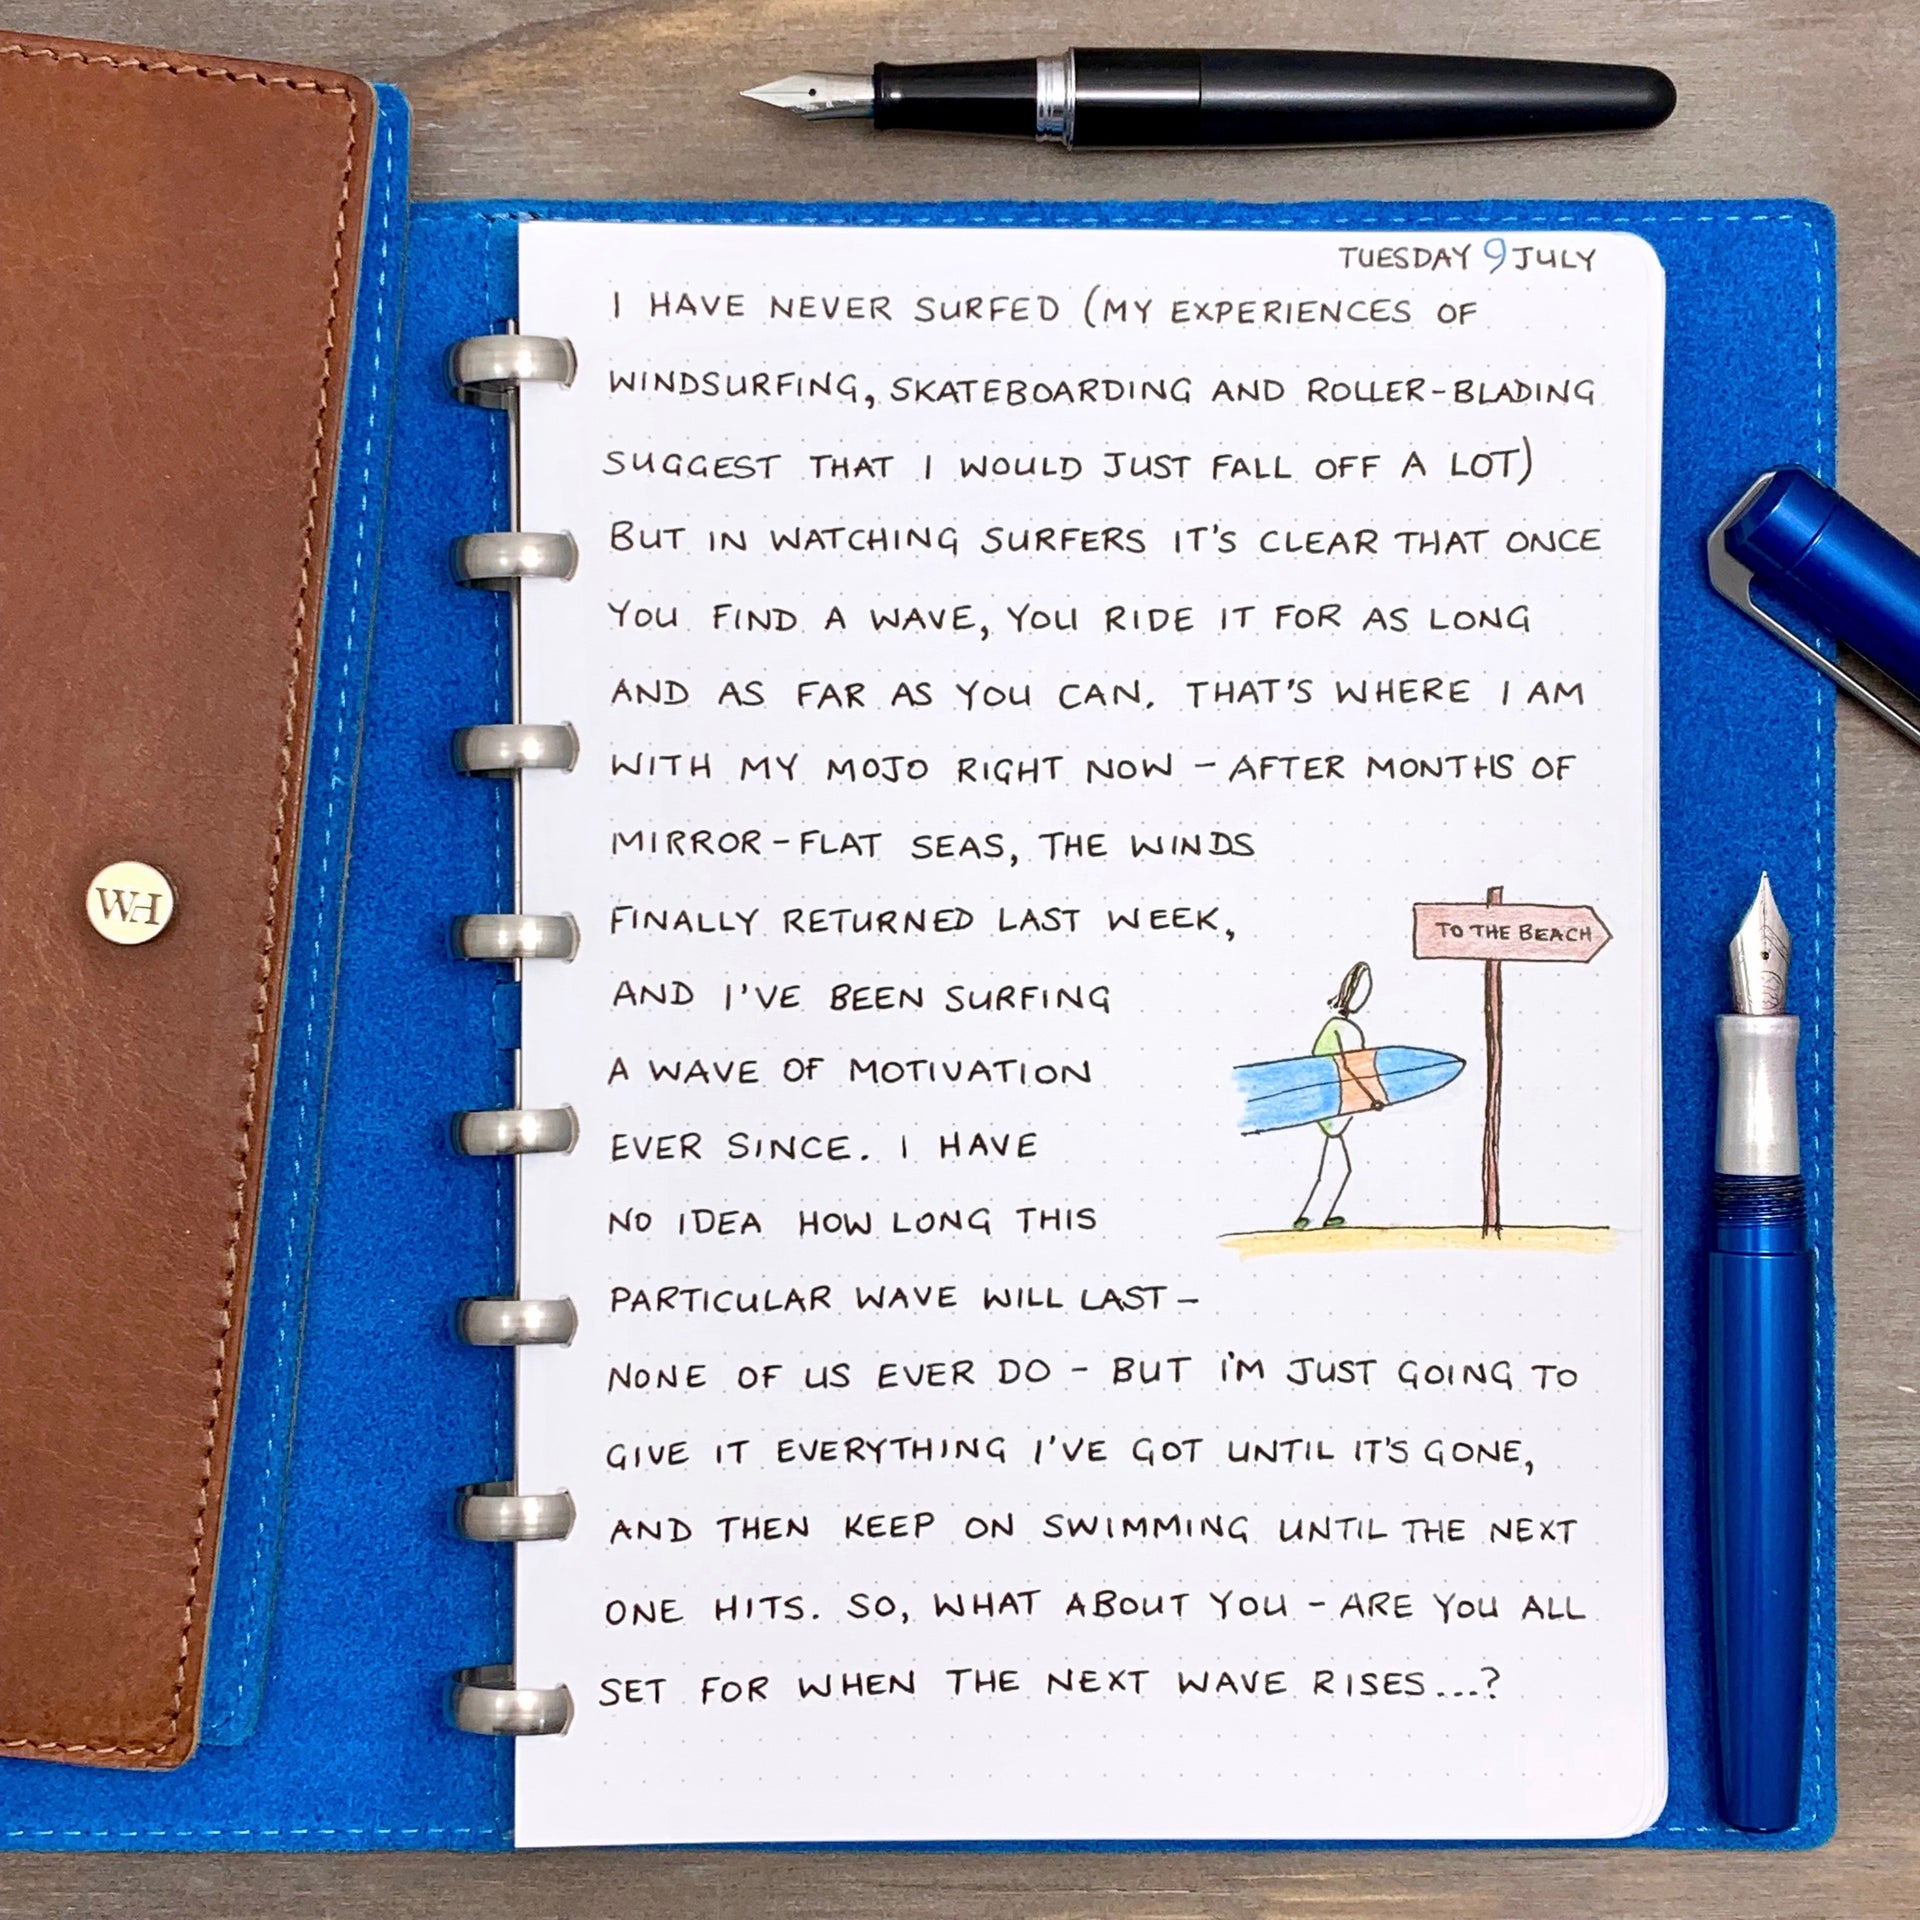 TUESDAY 9 JULY
I HAVE NEVER SURFED (MY EXPERIENCES OF
WINDSURFING, SKATEBOARDING AND ROLLER-BLADING
SUGGEST THAT I WOULD JUST FALL OFF A LOT)
BUT IN WATCHING SURFERS IT'S CLEAR THAT ONCE
YOU FIND A WAVE, YOU RIDE IT FOR AS LONG
AND AS FAR AS YOU CAN. THAT'S WHERE I AM
WITH MY MOJO RIGHT NOW - AFTER MONTHS OF
MIRROR-FLAT SEAS, THE WINDS
FINALLY RETURNED LAST WEEK,
AND I'VE BEEN SURFING
A WAVE OF MOTIVATION
EVER SINCE. I HAVE
NO IDEA HOW LONG THIS
PARTICULAR WAVE WILL LAST -
NONE OF US EVER DO - BUT I'M JUST GOING TO
GIVE IT EVERYTHING I'VE GOT UNTIL IT'S GONE,
AND THEN KEEP ON SWIMMING UNTIL THE NEXT
ONE HITS. SO, WHAT ABOUT YOU - ARE YOU ALL
SET FOR WHEN THE NEXT WAVE RISES...?
TO THE BEACH
WH